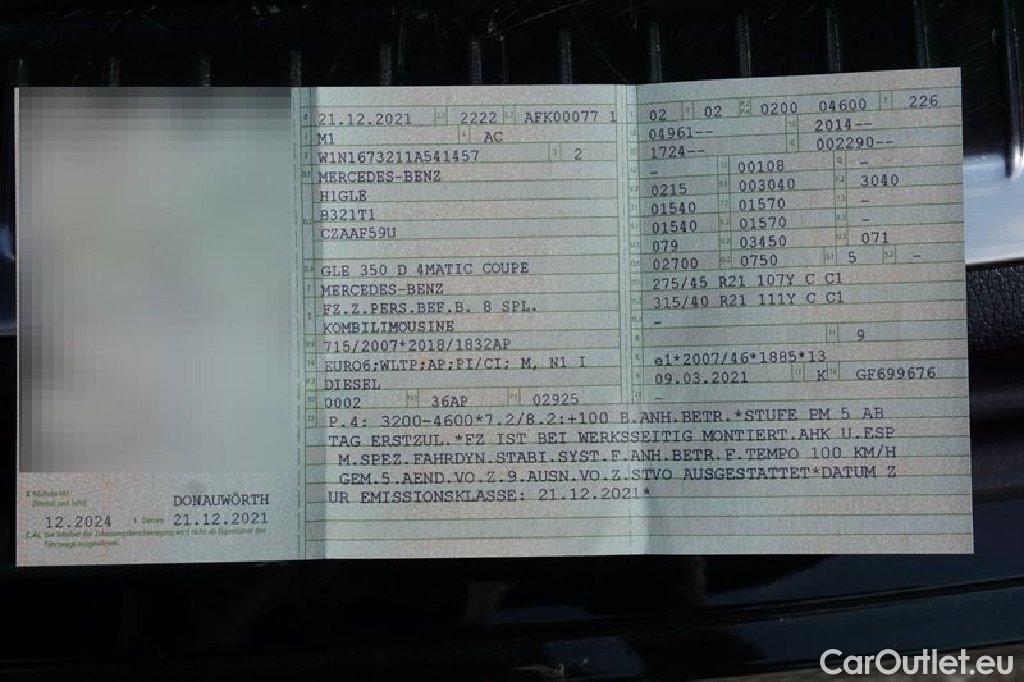 21.12.2021 2222 AFK00077 1
M1 AC
W1N1673211A541457 2
MERCEDES-BENZ
H1GLE
B321T1
CZAAF59U
GLE 350 D 4MATIC COUPE
MERCEDES-BENZ
FZ.Z.PERS.BEF.B. 8 SPL.
KOMBILIMOUSINE
715/2007*2018/1832AP
EURO6;WLTP;AP;PI/CI; M, N1 I
DIESEL
0002 36AP 02925
02 02 0200 04600 226
04961-- 2014--
1724-- 002290--
- 00108 -
0215 003040 3040
01540 01570 -
01540 01570 -
079 03450 071
02700 0750 5 -
275/45 R21 107Y C C1
315/40 R21 111Y C C1
-
9
e1*2007/46*1885*13
09.03.2021 K GF699676
-
P.4: 3200-4600*7.2/8.2:+100 B.ANH.BETR.*STUFE PM 5 AB
TAG ERSTZUL.*FZ IST BEI WERKSSEITIG MONTIERT.AHK U.ESP
M.SPEZ.FAHRDYN.STABI.SYST.F.ANH.BETR.F.TEMPO 100 KM/H
GEM.5.AEND.VO.Z.9.AUSN.VO.Z.STVO AUSGESTATTET*DATUM Z
UR EMISSIONSKLASSE: 21.12.2021*
DONAUWÖRTH
12.2024 Datum 21.12.2021
C.4c. Der Inhaber der Zulassungsbescheinigung wird nicht als Eigentümer des
Fahrzeugs ausgewiesen.
CarOutlet.eu